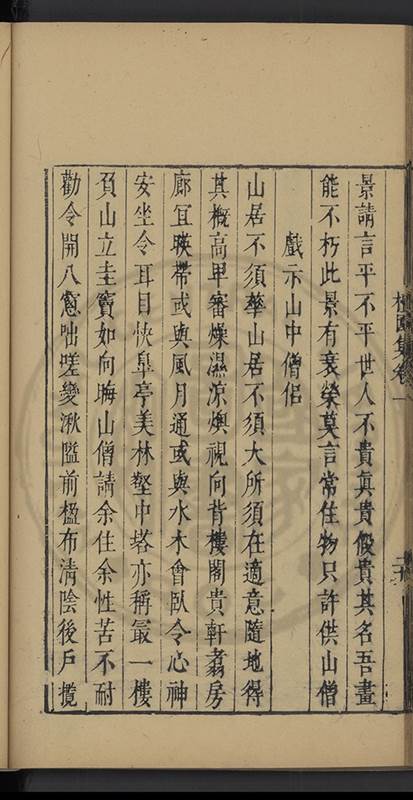 景請言平不平世人不貴真貴假貴其名吾畫
能不朽此景有衰榮莫言常住物只許供山僧
戲示山中僧侶
山居不須華山居不須大所須在適意隨地得
其概高卑審燥濕涼燠視向背樓閣貴軒翥房
廊宜暎帶或與風月通或與水木會臥令心神
安坐令耳目快皐亭美林壑中塔亦稱最一樓
負山立圭竇如向晦山僧請余住余性苦不耐
勸令開八窻咄嗟變湫隘前楹布清陰後戶攬
集卷一